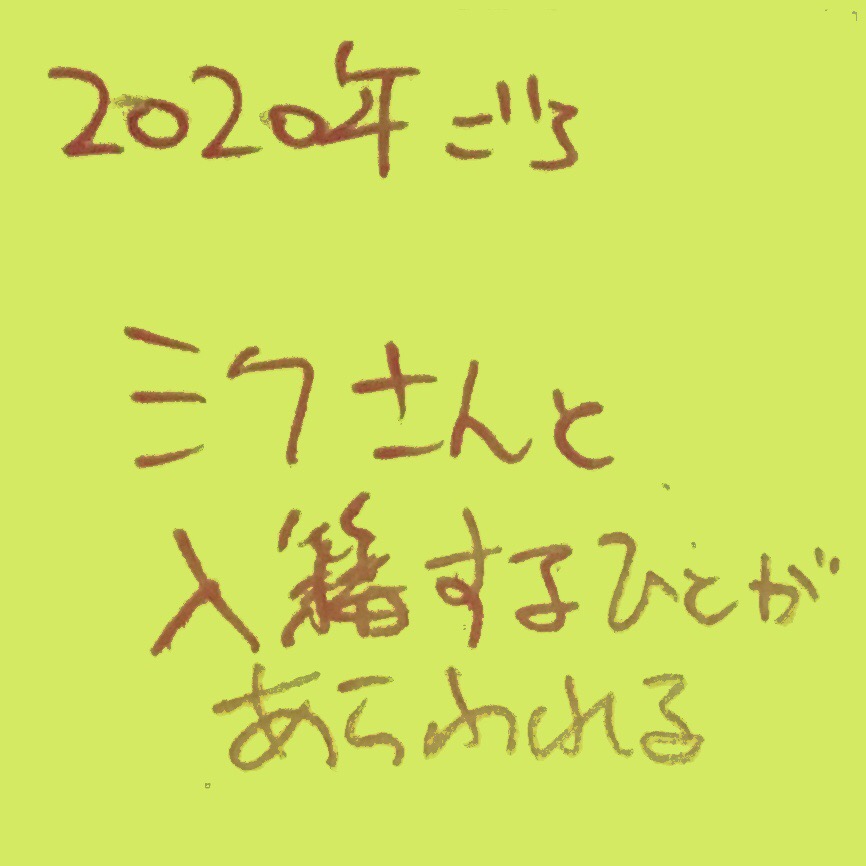 2020年ごろ
ミクさんと
入籍するひとが
あらわれる